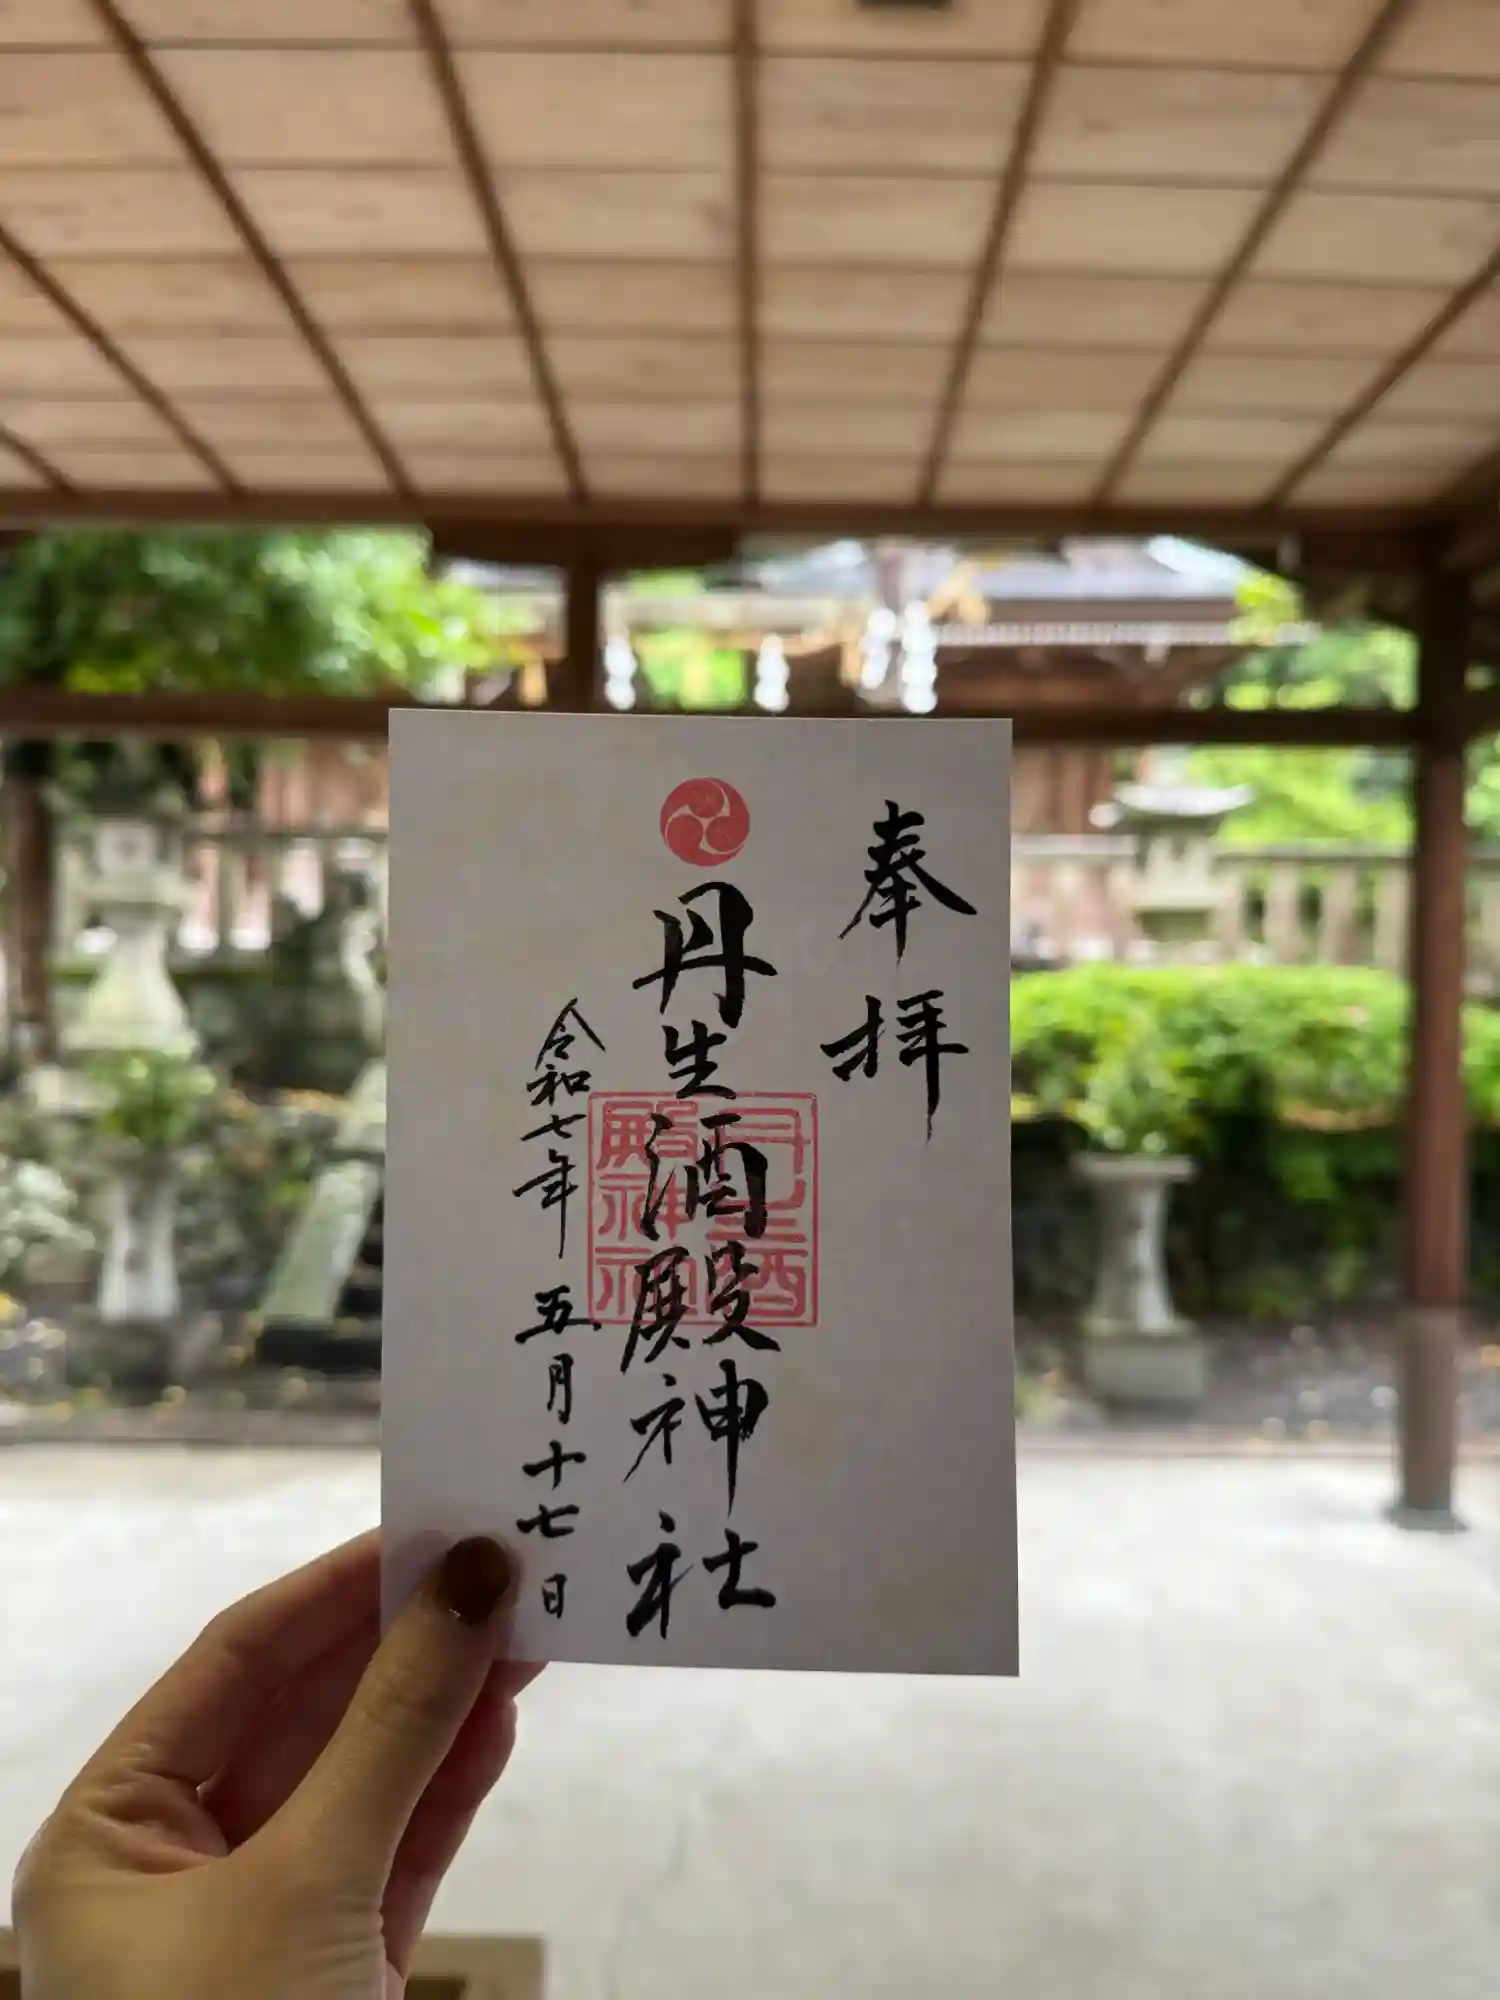 奉拝
丹生酒殿神社
丹生酒
殿神社
令和七年五月十七日